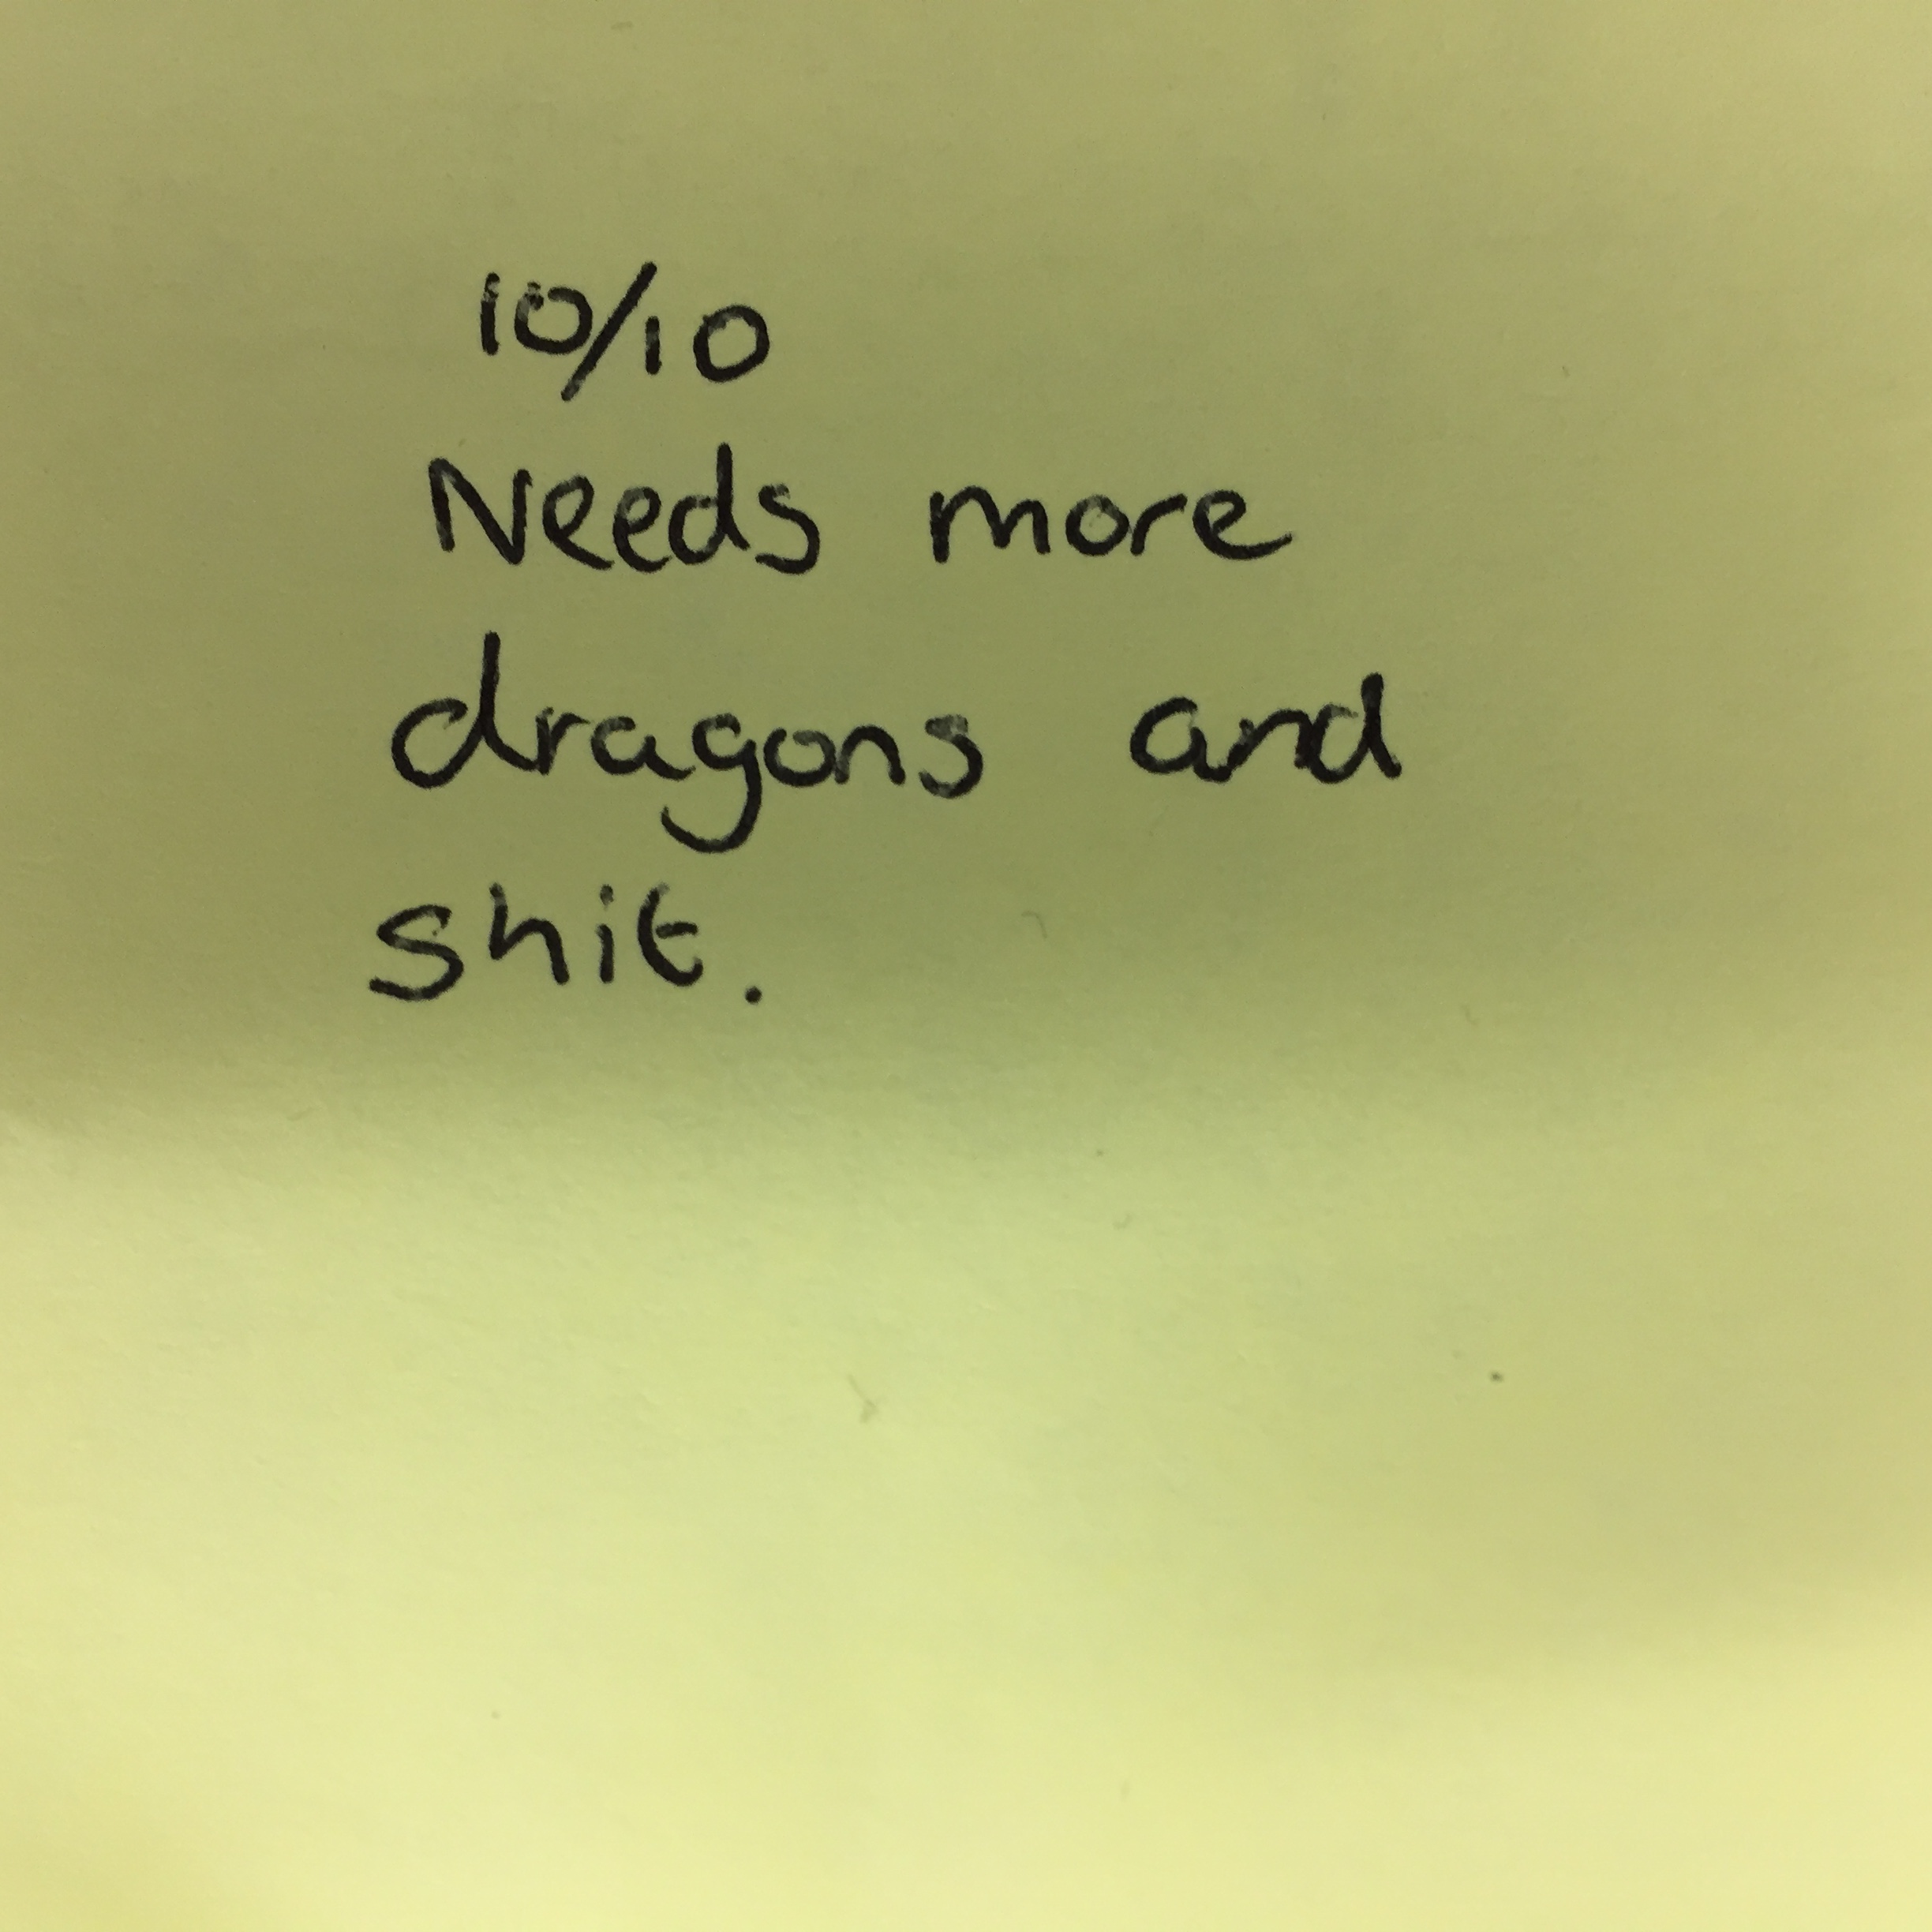 10/10
Needs more
dragons and
shit.